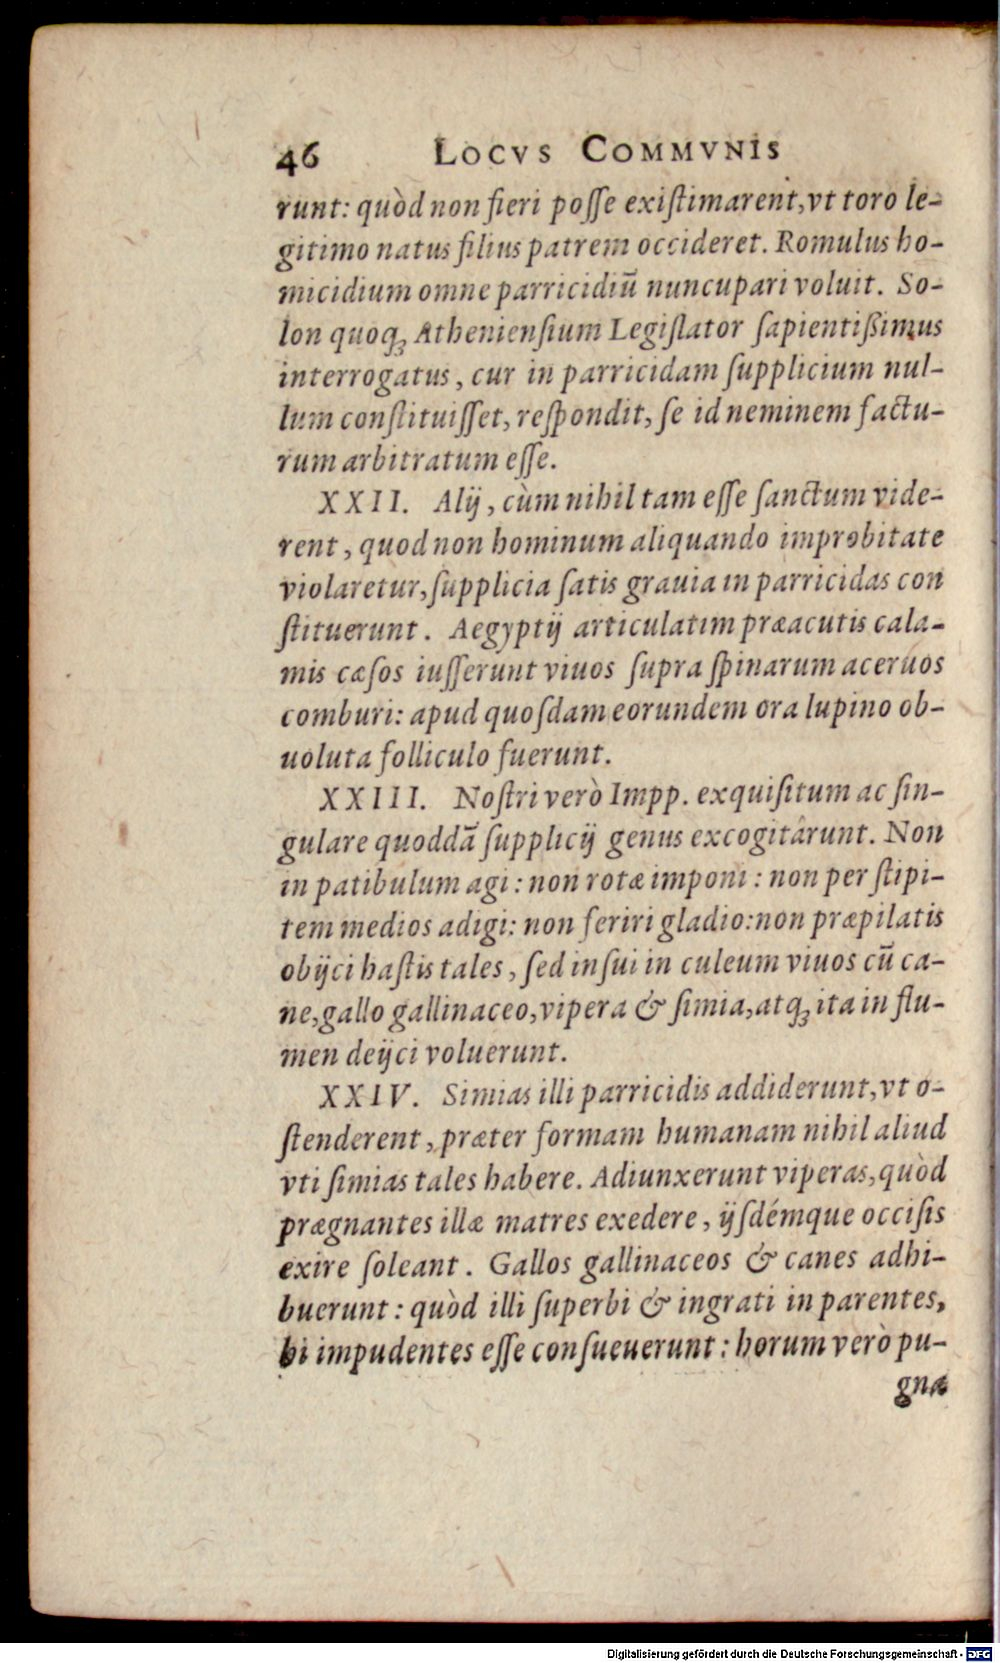 46 LOCVS COMMVNIS
runt: quòd non fieri poſſe exiſtimarent, vt toro le-
gitimo natus filius patrem occideret. Romulus ho-
micidium omne parricidiũ nuncupari voluit. So-
lon quoq; Athenienſium Legiſlator ſapientißimus
interrogatus, cur in parricidam ſupplicium nul-
lum conſtituiſſet, reſpondit, ſe id neminem factu-
rum arbitratum eſſe.
XXII. Alij, cùm nihil tam eſſe ſanctum vide-
rent, quod non hominum aliquando improbitate
violaretur, ſupplicia ſatis grauia in parricidas con
ſtituerunt. Aegyptij articulatim præacutis cala-
mis cæſos iuſſerunt viuos ſupra ſpinarum aceruos
comburi: apud quoſdam eorundem ora lupino ob-
uoluta folliculo fuerunt.
XXIII. Noſtri verò Impp. exquiſitum ac ſin-
gulare quoddã ſupplicij genus excogitârunt. Non
in patibulum agi: non rotæ imponi: non per ſtipi-
tem medios adigi: non feriri gladio: non præpilatis
obijci haſtis tales, ſed inſui in culeum viuos cũ ca-
ne, gallo gallinaceo, vipera & ſimia, atq; ita in flu-
men deijci voluerunt.
XXIV. Simias illi parricidis addiderunt, vt o-
ſtenderent, præter formam humanam nihil aliud
vti ſimias tales habere. Adiunxerunt viperas, quòd
prægnantes illæ matres exedere, ijſdémque occiſis
exire ſoleant. Gallos gallinaceos & canes adhi-
buerunt: quòd illi ſuperbi & ingrati in parentes,
hi impudentes eſſe conſueuerunt: horum verò pu-
gnæ
Digitalisierung gefördert durch die Deutsche Forschungsgemeinschaft - DFG